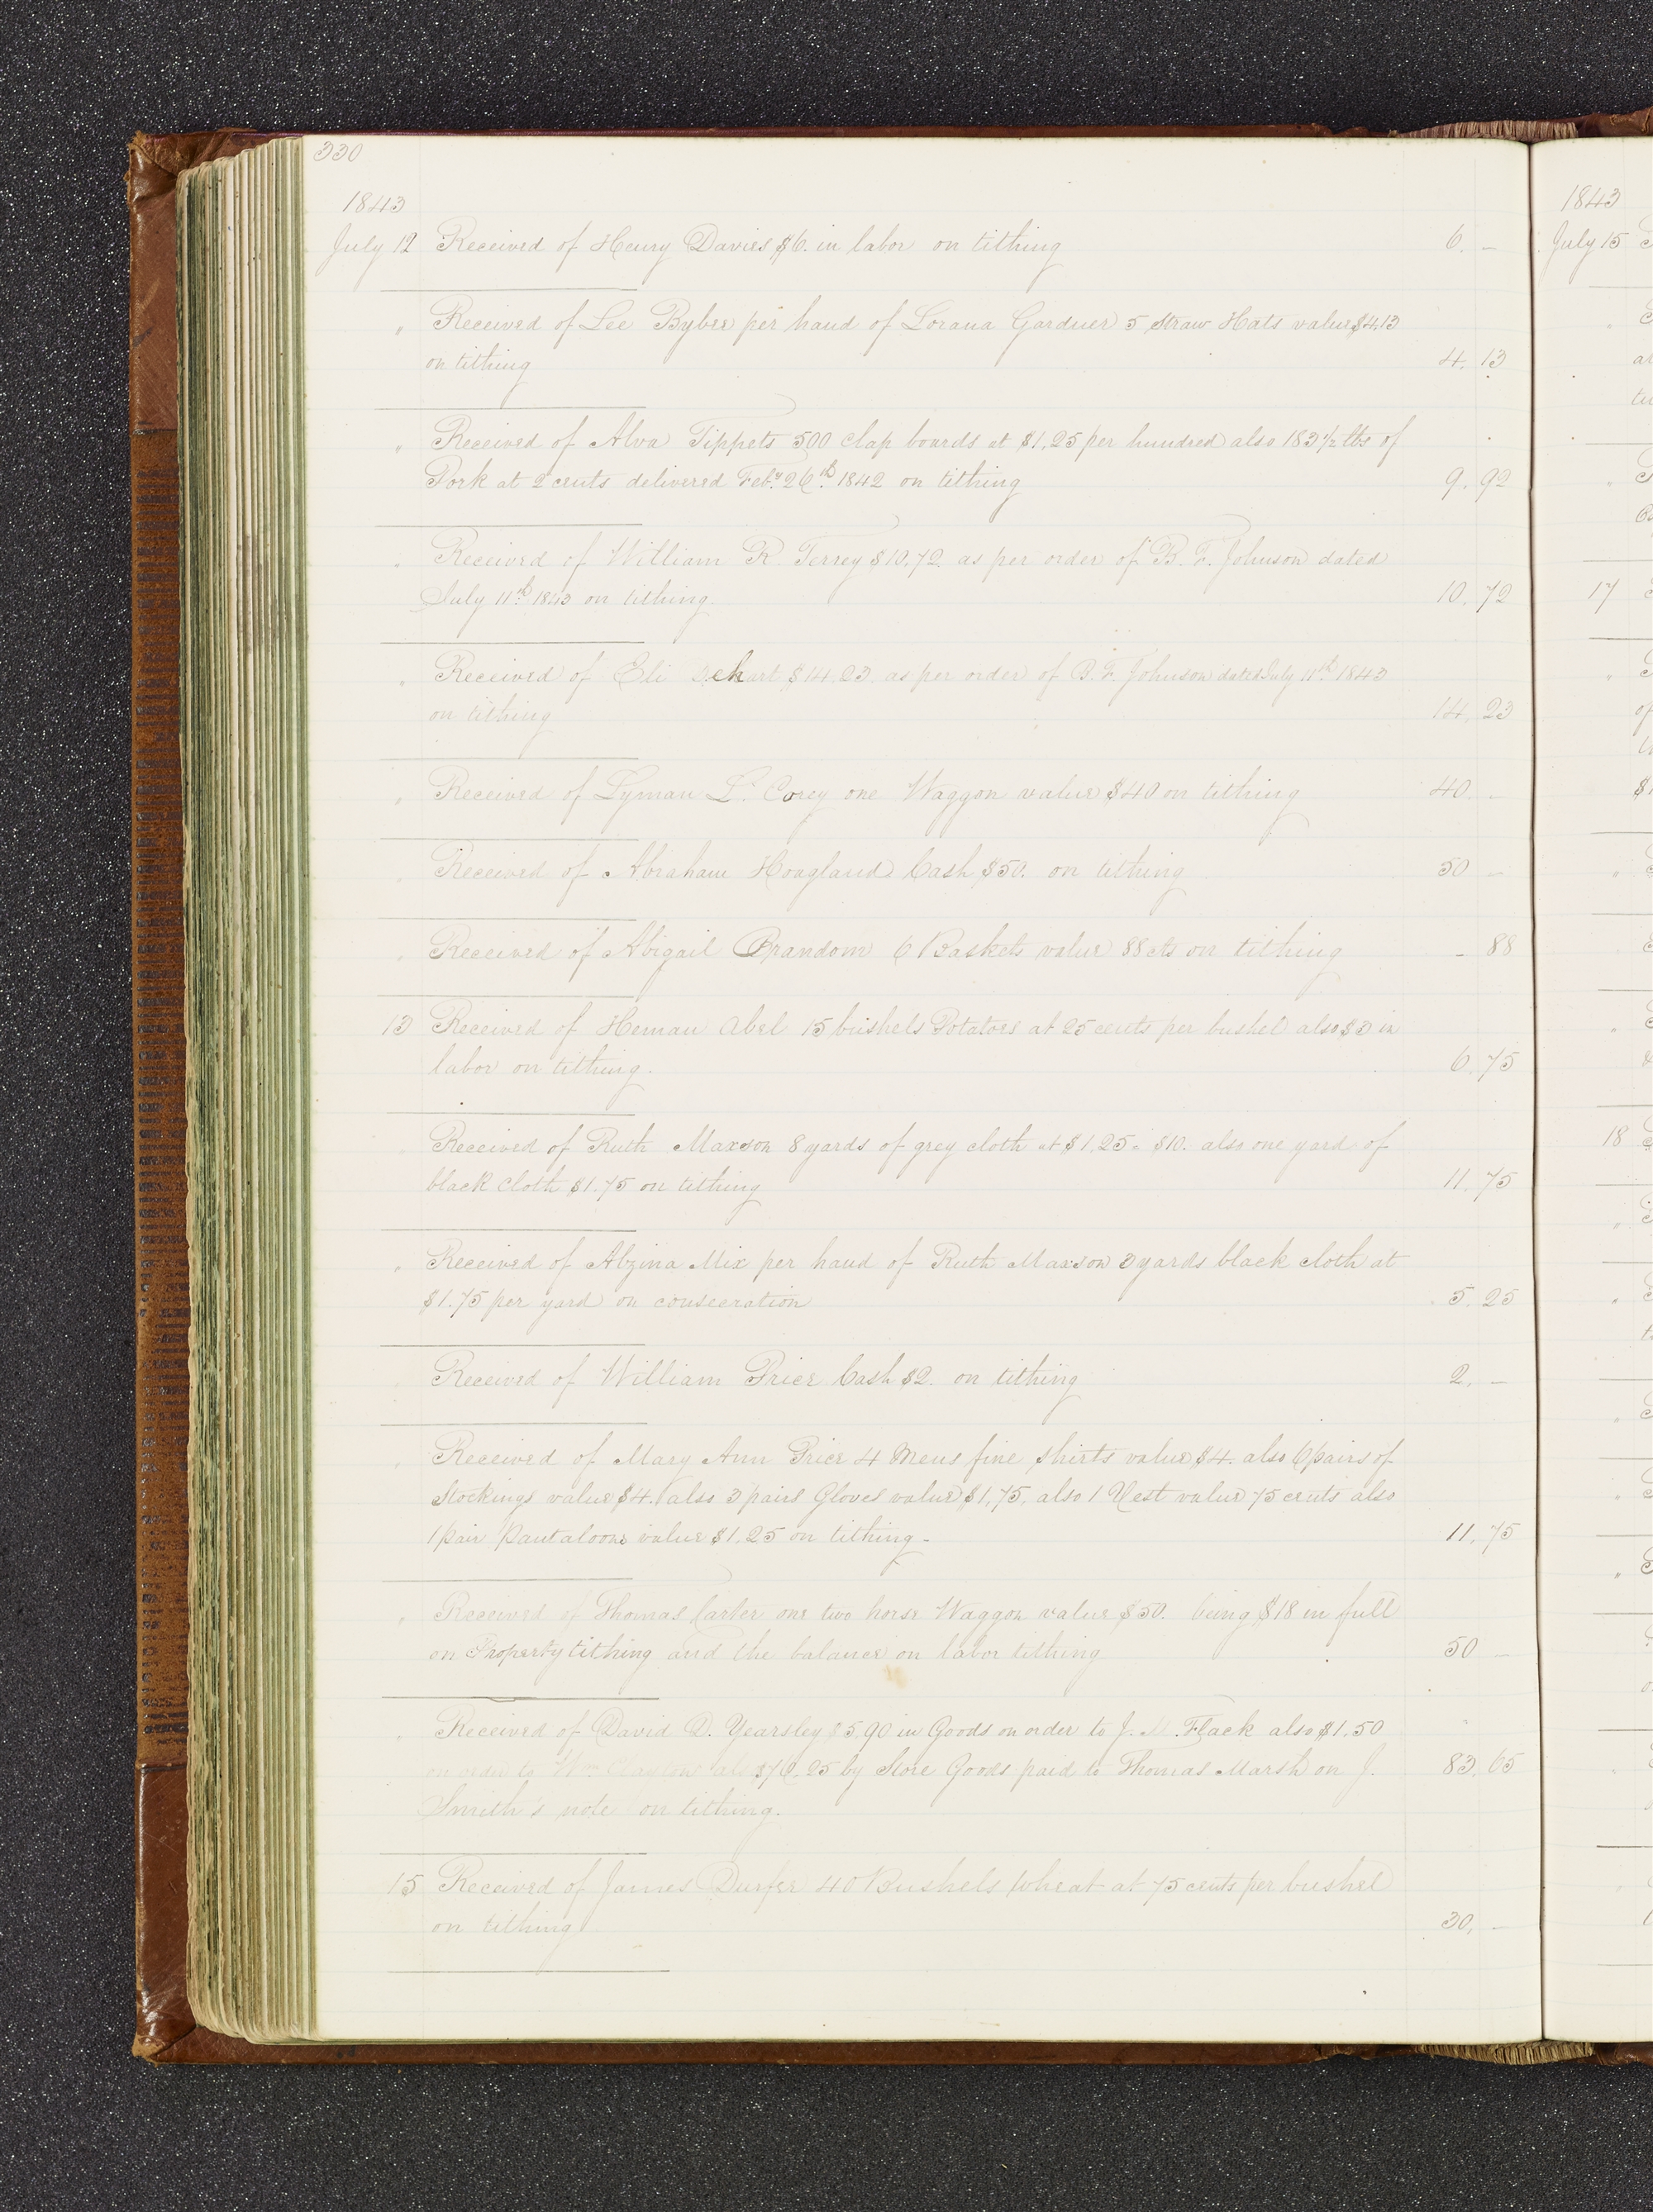 330
1843
July 12 Received of Henry Davies $6. in labor on tithing 6. –
" Received of Lee Bybee per hand of Lorana Gardner 5 Straw Hats value $4.13
on tithing 4. 13
" Received of Alva Tippets 500 clap boards at $1.25 per hundred also 183 1/2 lbs of
Pork at 2 cents delivered Feby. 26th. 1842 on tithing 9. 92
" Received of William R. Terrey $10.72. as per order of B. F. Johnson dated
July 11th. 1843 on tithing. 10. 72
" Received of Eli $14.23. as per order of B. F. Johnson dated July 11th. 1843
on tithing 14. 23
" Received of Lyman L. Corey one Waggon value $40 on tithing 40. –
" Received of Abraham Hoagland Cash $50. on tithing 50 –
" Received of Abigail Brandom 6 Baskets value 88 cts on tithing – 88
13 Received of Heman Abel 15 bushels Potatoes at 25 cents per bushel also $3 in
labor on tithing. 6. 75
" Received of Ruth Maxson 8 yards of grey cloth at $1.25 = $10. also one yard of
black cloth $1.75 on tithing 11. 75
" Received of Abzina Mix per hand of Ruth Maxson 3 yards black cloth at
$1.75 per yard on consecration 5. 25
" Received of William Price Cash $2. on tithing 2. –
" Received of Mary Ann Price 4 Mens fine shirts value $4. also 6 pairs of
Stockings value $4. also 3 pairs Gloves value $1.75, also 1 Vest value 75 cents also
1 pair Pantaloons value $1.25 on tithing – 11. 75
" Received of Thomas Carter one two horse Waggon value $50. being $18 in full
on Property tithing and the balance on labor tithing 50 –
" Received of David D. Yearsley $5.90 in Goods on order to J. M. Flack also $1.50
on order to Wm. Clayton als $76.25 by Store Goods paid to Thomas Marsh on J. 83. 65
Smith's note on tithing.
15 Received of James Durfee 40 Bushels Wheat at 75 cents per bushel
on tithing 30. –
1843
July 15
17
18